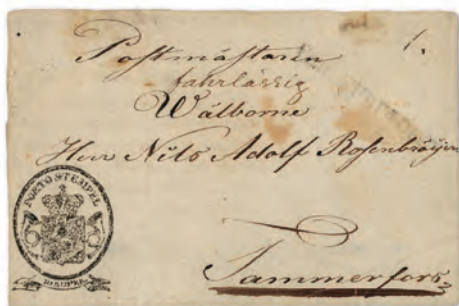 1.
Postmästaren
fahrlässig
Wälborne
Herr Nils Adolf Rosenbröijer
Tammerfors
PORTO STEMPEL
10 KOP.